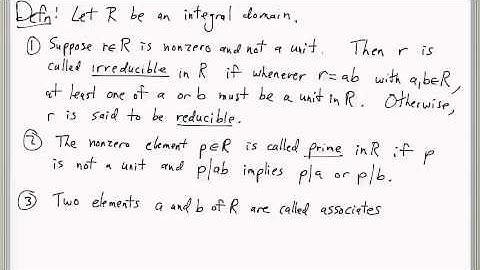 Defn: Let R be an integral domain.
① Suppose r∈R is nonzero and not a unit. Then r is
called irreducible in R if whenever r=ab with a,b∈R,
at least one of a or b must be a unit in R. Otherwise,
r is said to be reducible.
② The nonzero element p∈R is called prime in R if p
is not a unit and p|ab implies p|a or p|b.
③ Two elements a and b of R are called associates